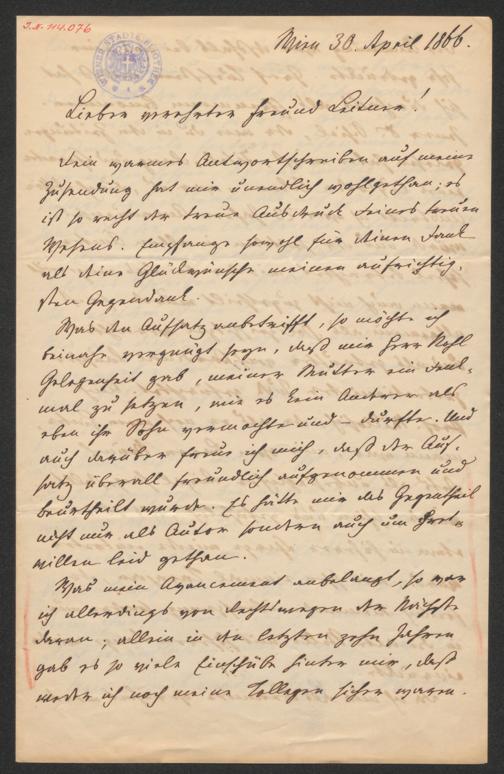 J.N. 114.076
WIENER STADTBIBLIOTHEK
Wien 30. April 1866.
Lieber verehrter Freund Leitner!
Dein warmes Antwortschreiben auf meine
Zusendung hat mir unendlich wohlgethan; es
ist so recht der treue Ausdruck Deines treuen
Wesens. Empfange sowohl für Deinen Dank
als Deine Glückwünsche meinen aufrichtig-
sten Gegendank.
Was den Aufsatz anbetrifft, so möchte ich
beinahe vergnügt seyn, daß mir Herr
Gelegenheit gab, meiner Mutter ein Denk-
mal zu setzen, wie es kein Anderer als
eben ihr Sohn vermochte und – durfte. Und
auch darüber freue ich mich, daß der Auf-
satz überall freundlich aufgenommen und
beurtheilt wurde. Es hätte mir das Gegentheil
nicht nur als Autor sondern auch um
willen leid gethan.
Was mein Avancement anbelangt, so war
ich allerdings von Rechtswegen der Nächste
daran; allein in den letzten zehn Jahren
gab es so viele Einschübe hinter mir, daß
weder ich noch meine Collegen sicher waren.